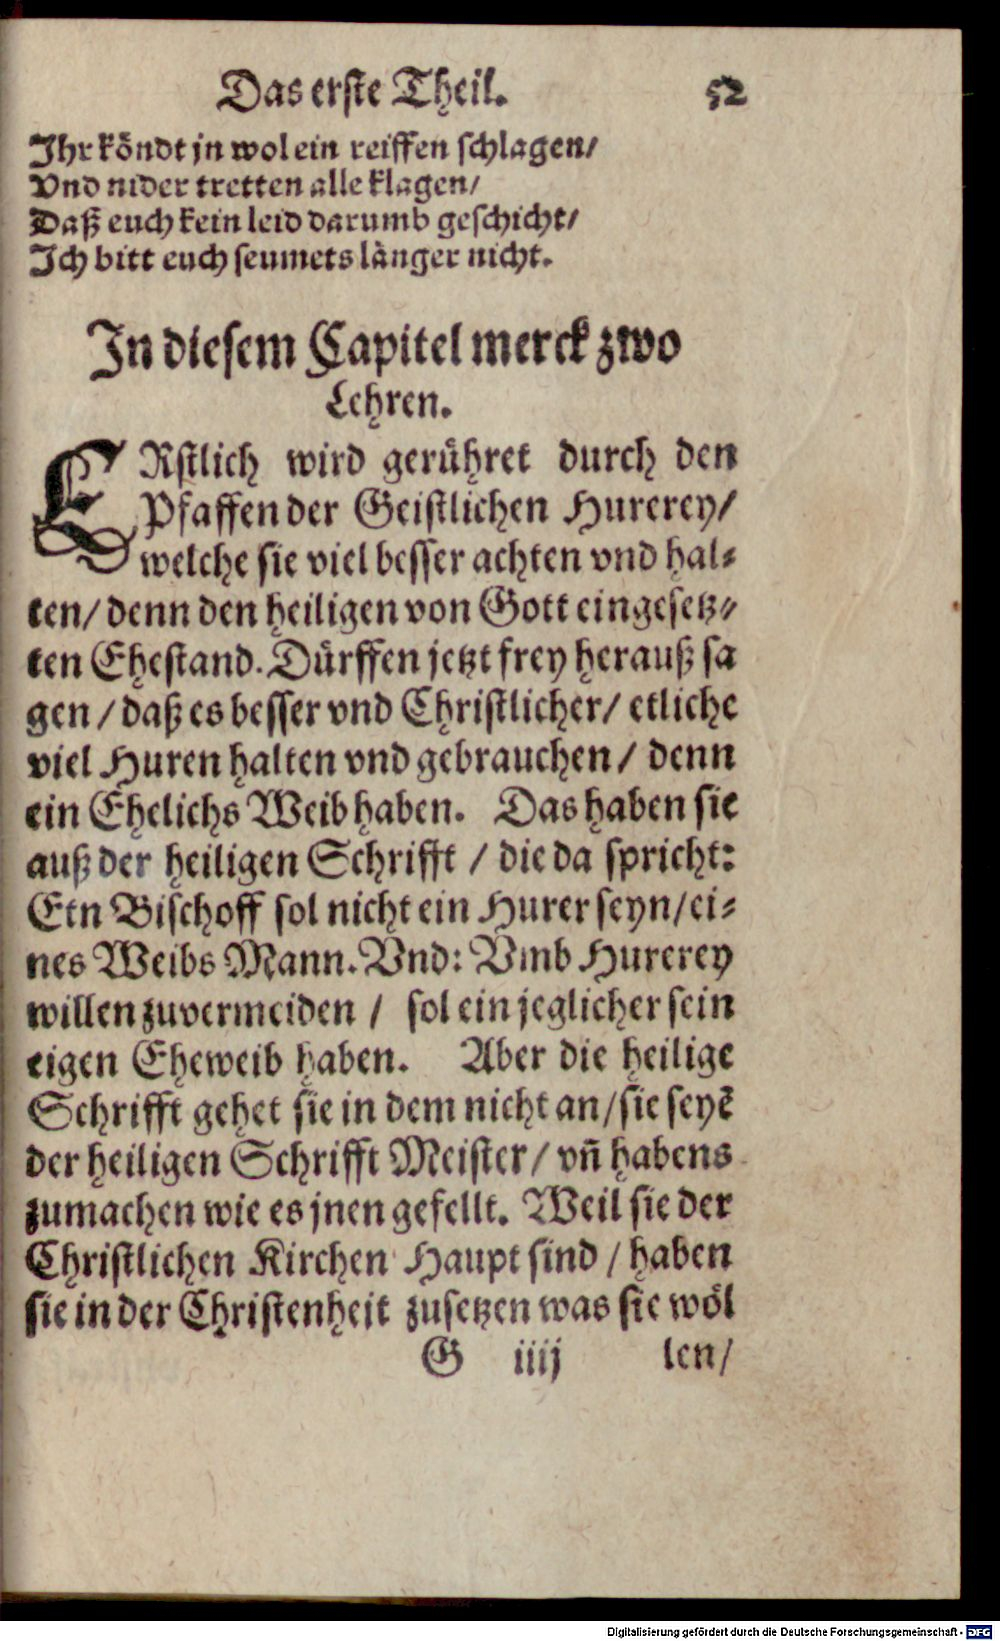 Das erste Theil. 52
Ihr köndt jn wol ein reiffen schlagen/
Vnd nider tretten alle klagen/
Daß euch kein leid darumb geschicht/
Ich bitt euch seumets länger nicht.
In diesem Capitel merck zwo
Lehren.
ERstlich wird gerühret durch den
Pfaffen der Geistlichen Hurerey/
welche sie viel besser achten vnd hal-
ten/ denn den heiligen von Gott eingesetz-
ten Ehestand. Dürffen jetzt frey herauß sa
gen/ daß es besser vnd Christlicher/ etliche
viel Huren halten vnd gebrauchen/ denn
ein Ehelichs Weib haben. Das haben sie
auß der heiligen Schrifft / die da spricht:
Etn Bischoff sol nicht ein Hurer seyn/ ei-
nes Weibs Mann. Vnd: Vmb Hurerey
willen zuvermeiden / sol ein jeglicher sein
eigen Eheweib haben. Aber die heilige
Schrifft gehet sie in dem nicht an/ sie seyẽ
der heiligen Schrifft Meister/ vñ habens
zumachen wie es jnen gefellt. Weil sie der
Christlichen Kirchen Haupt sind / haben
sie in der Christenheit zusetzen was sie wöl
G iiij len/
Digitalisierung gefördert durch die Deutsche Forschungsgemeinschaft - DFG